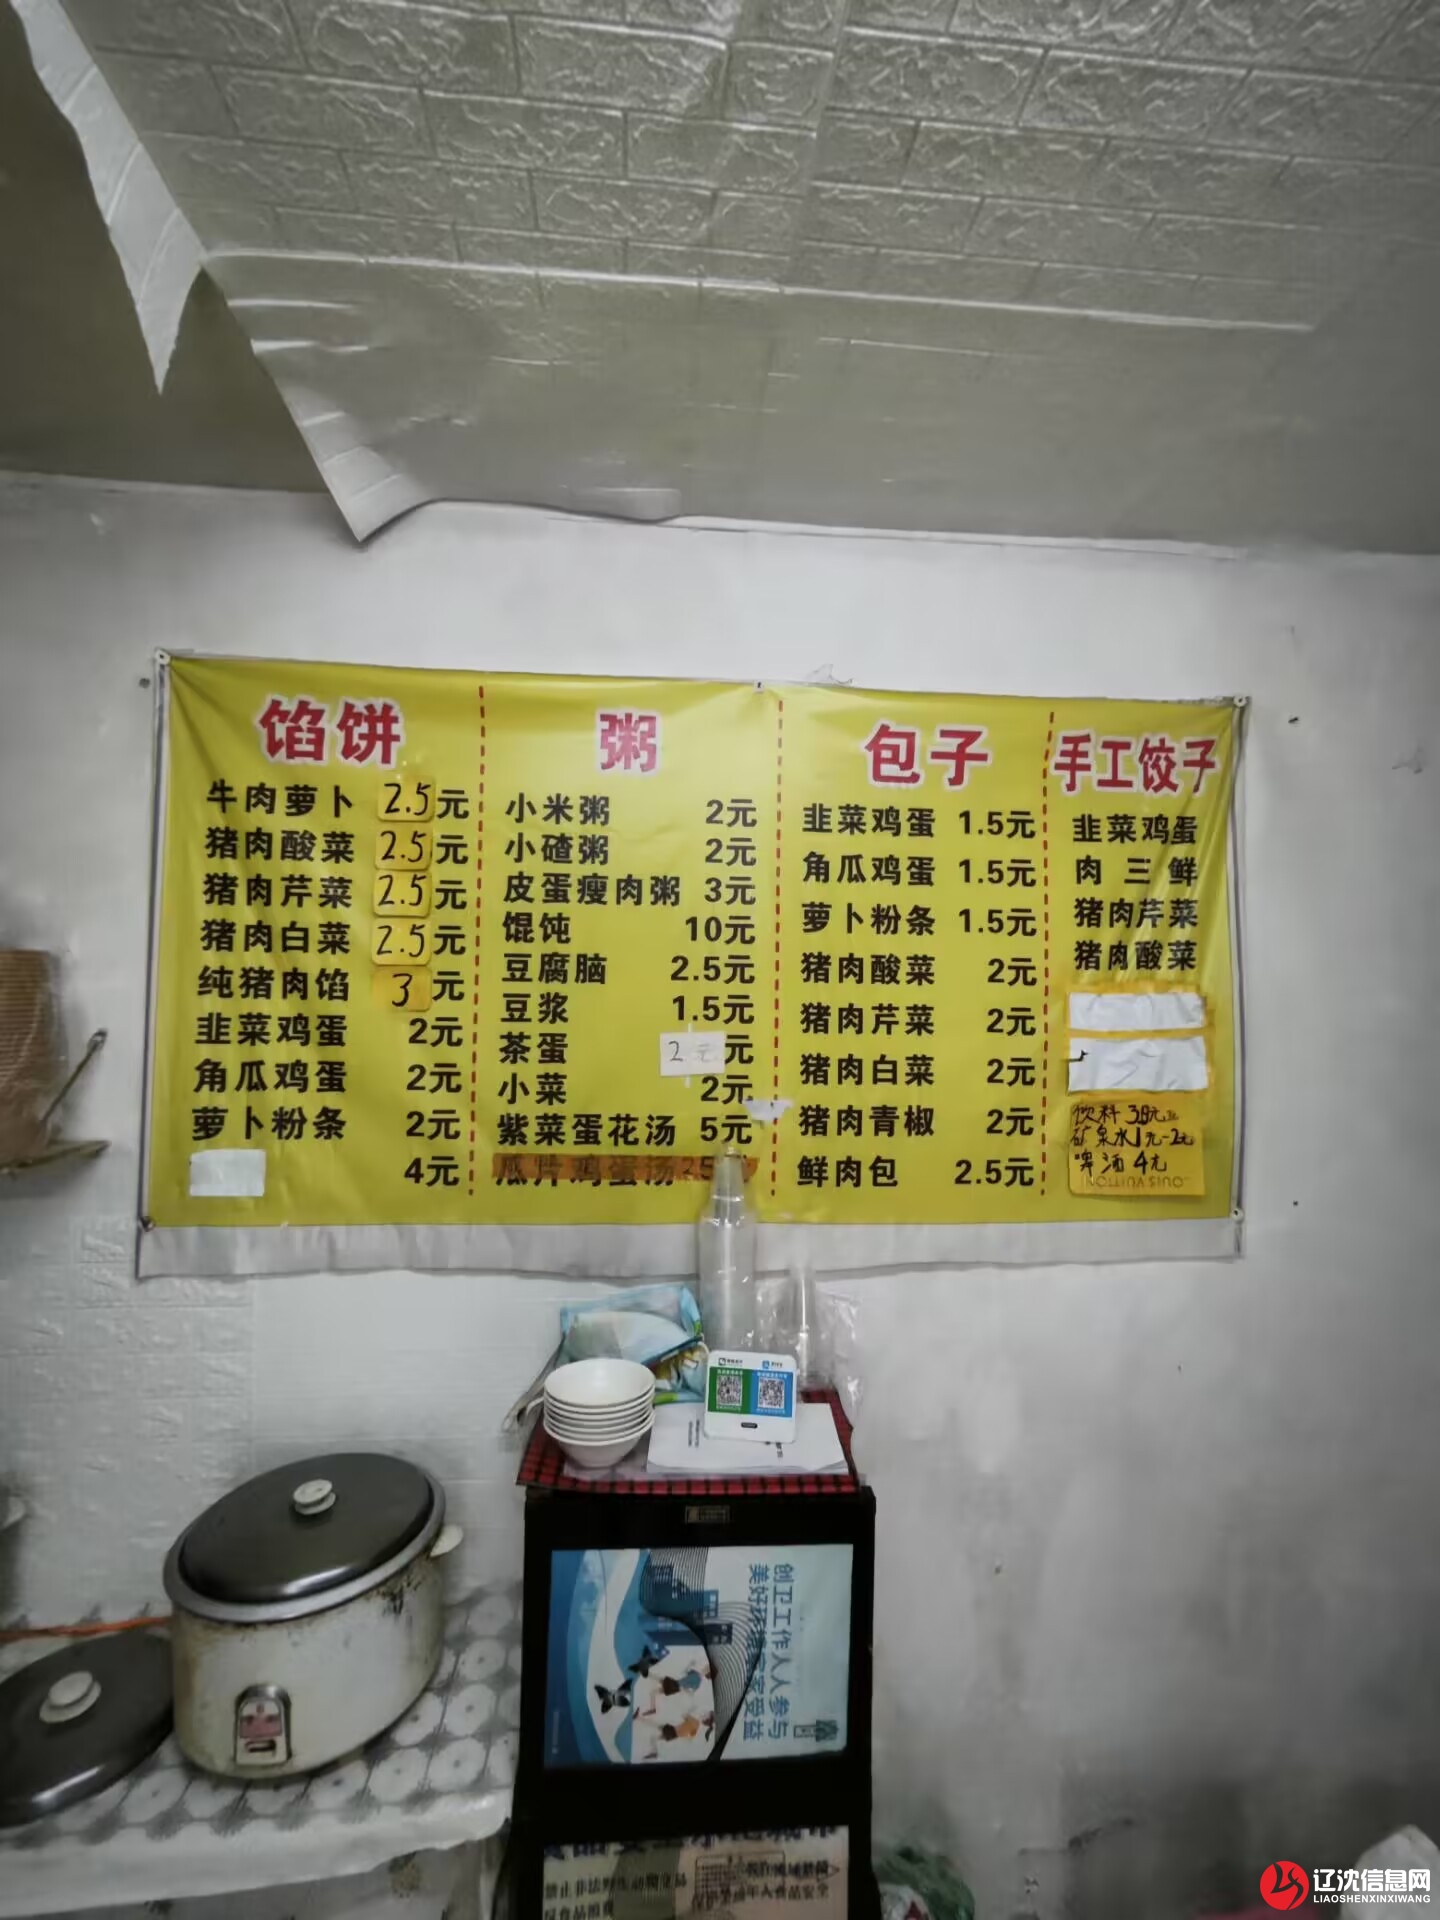 馅饼
牛肉萝卜 2.5元
猪肉酸菜 2.5元
猪肉芹菜 2.5元
猪肉白菜 2.5元
纯猪肉馅 3元
韭菜鸡蛋 2元
角瓜鸡蛋 2元
萝卜粉条 2元
4元
粥
小米粥 2元
小碴粥 2元
皮蛋瘦肉粥 3元
馄饨 10元
豆腐脑 2.5元
豆浆 1.5元
茶蛋 2元元
小菜 2元
紫菜蛋花汤 5元
鸡蛋汤
包子
韭菜鸡蛋 1.5元
角瓜鸡蛋 1.5元
萝卜粉条 1.5元
猪肉酸菜 2元
猪肉芹菜 2元
猪肉白菜 2元
猪肉青椒 2元
鲜肉包 2.5元
手工饺子
韭菜鸡蛋
肉三鲜
猪肉芹菜
猪肉酸菜
饮料
矿泉水1元-2元
啤酒 4元
创卫工作人人参与
美好环境家家受益
辽沈信息网
LIAOSHENXINXIWANG